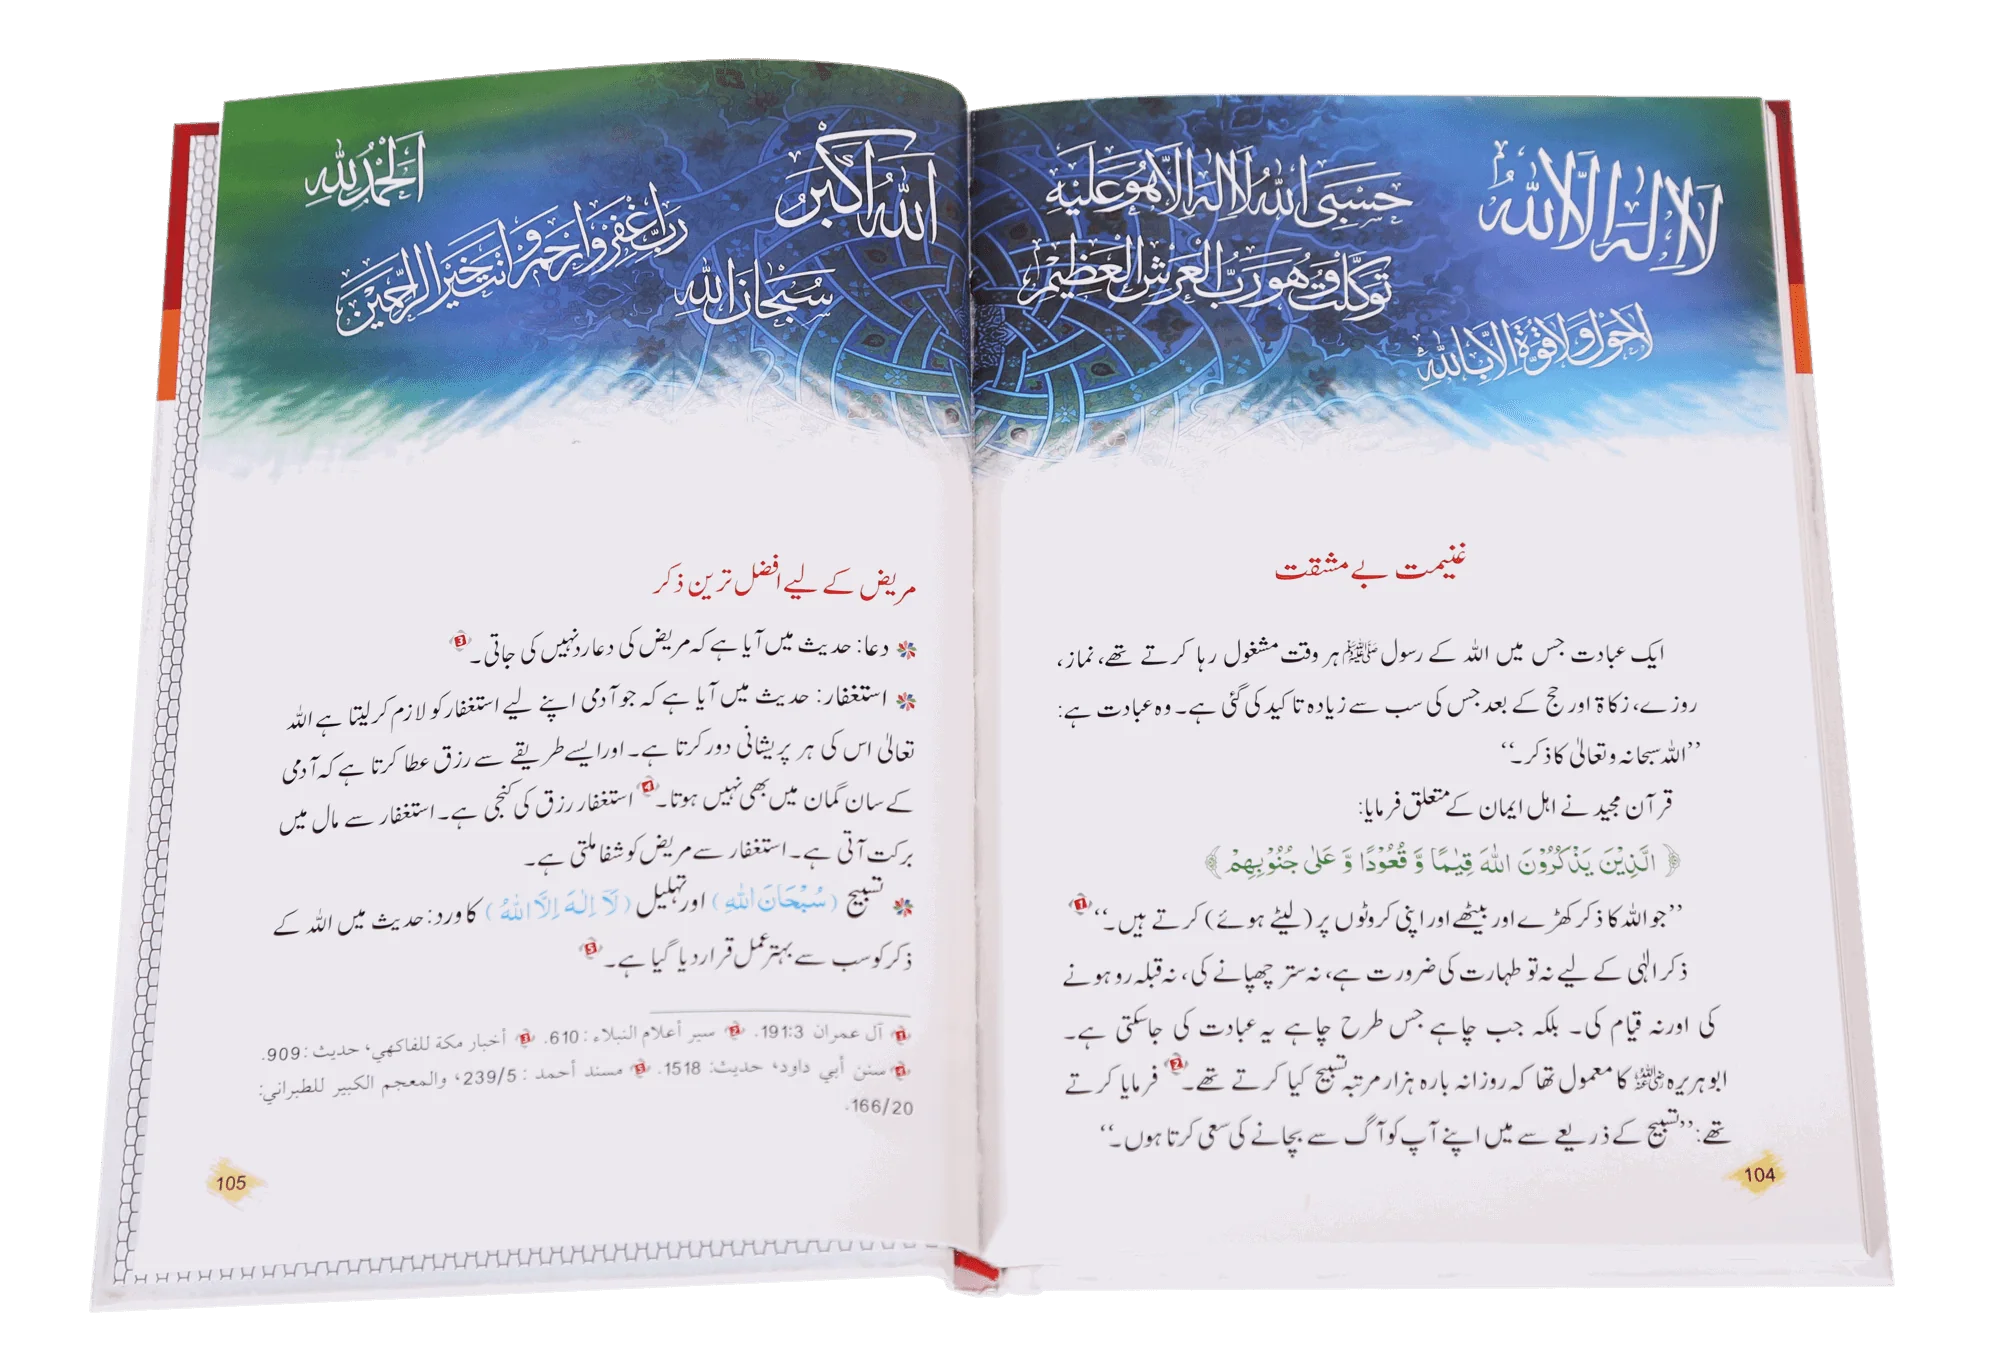 لَا اِلٰهَ اِلَّا اللّٰهُ
حَسْبِيَ اللّٰهُ لَا اِلٰهَ اِلَّا هُوَ عَلَيْهِ
تَوَكَّلْتُ وَهُوَ رَبُّ الْعَرْشِ الْعَظِيْمِ
لَا حَوْلَ وَلَا قُوَّةَ اِلَّا بِاللّٰهِ
غنیمت بے مشقت
ایک عبادت جس میں اللہ کے رسول ﷺ ہر وقت مشغول رہا کرتے تھے، نماز،
روزے، زکاۃ اور حج کے بعد جس کی سب سے زیادہ تاکید کی گئی ہے۔ وہ عبادت ہے:
’’اللہ سبحانہ وتعالیٰ کا ذکر۔‘‘
قرآن مجید نے اہل ایمان کے متعلق فرمایا:
﴿ الَّذِيْنَ يَذْكُرُوْنَ اللّٰهَ قِيٰمًا وَّ قُعُوْدًا وَّ عَلٰى جُنُوْبِهِمْ ﴾
’’جو اللہ کا ذکر کھڑے اور بیٹھے اور اپنی کروٹوں پر (لیٹے ہوئے) کرتے ہیں۔‘‘ 1
ذکر الٰہی کے لیے نہ تو طہارت کی ضرورت ہے، نہ ستر چھپانے کی، نہ قبلہ رو ہونے
کی اور نہ قیام کی۔ بلکہ جب چاہے جس طرح چاہے یہ عبادت کی جاسکتی ہے۔
ابو ہریرہ رضی اللہ عنہ کا معمول تھا کہ روزانہ بارہ ہزار مرتبہ تسبیح کیا کرتے تھے۔ 2 فرمایا کرتے
تھے: ’’تسبیح کے ذریعے سے میں اپنے آپ کو آگ سے بچانے کی سعی کرتا ہوں۔‘‘
104
اَللّٰهُ اَكْبَرُ
اَلْحَمْدُ لِلّٰهِ
رَبِّ اغْفِرْ وَارْحَمْ وَاَنْتَ خَيْرُ الرّٰحِمِيْنَ
سُبْحَانَ اللّٰهِ
مریض کے لیے افضل ترین ذکر
دعا: حدیث میں آیا ہے کہ مریض کی دعا رد نہیں کی جاتی۔ 3
استغفار: حدیث میں آیا ہے کہ جو آدمی اپنے لیے استغفار کو لازم کر لیتا ہے اللہ
تعالیٰ اس کی ہر پریشانی دور کرتا ہے۔ اور ایسے طریقے سے رزق عطا کرتا ہے کہ آدمی
کے سان گمان میں بھی نہیں ہوتا۔ 4 استغفار رزق کی کنجی ہے۔ استغفار سے مال میں
برکت آتی ہے۔ استغفار سے مریض کو شفا ملتی ہے۔
تسبیح (سُبْحَانَ اللّٰهِ) اور تہلیل (لَا اِلٰهَ اِلَّا اللّٰهُ) کا ورد: حدیث میں اللہ کے
ذکر کو سب سے بہتر عمل قرار دیا گیا ہے۔ 5
1 آل عمران 191:3. 2 سير أعلام النبلاء: 610. 3 أخبار مكة للفاكهي، حديث: 909.
4 سنن أبي داود، حديث: 1518. 5 مسند أحمد: 239/5، والمعجم الكبير للطبراني:
166/20.
105